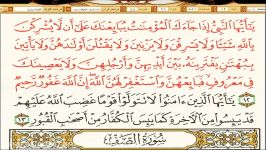 يَٰٓأَيُّهَا ٱلنَّبِيُّ إِذَا جَآءَكَ ٱلْمُؤْمِنَٰتُ يُبَايِعْنَكَ عَلَىٰٓ أَن لَّا يُشْرِكْنَ
بِٱللَّهِ شَيْـًٔا وَلَا يَسْرِقْنَ وَلَا يَزْنِينَ وَلَا يَقْتُلْنَ أَوْلَٰدَهُنَّ وَلَا يَأْتِينَ
بِبُهْتَٰنٍ يَفْتَرِينَهُۥ بَيْنَ أَيْدِيهِنَّ وَأَرْجُلِهِنَّ وَلَا يَعْصِينَكَ
فِى مَعْرُوفٍ فَبَايِعْهُنَّ وَٱسْتَغْفِرْ لَهُنَّ ٱللَّهَ إِنَّ ٱللَّهَ غَفُورٌ رَّحِيمٌ
١٢ يَٰٓأَيُّهَا ٱلَّذِينَ ءَامَنُوا۟ لَا تَتَوَلَّوْا۟ قَوْمًا غَضِبَ ٱللَّهُ عَلَيْهِمْ
قَدْ يَئِسُوا۟ مِنَ ٱلْءَاخِرَةِ كَمَا يَئِسَ ٱلْكُفَّارُ مِنْ أَصْحَٰبِ ٱلْقُبُورِ ١٣
سُورَةُ الصَّفِّ